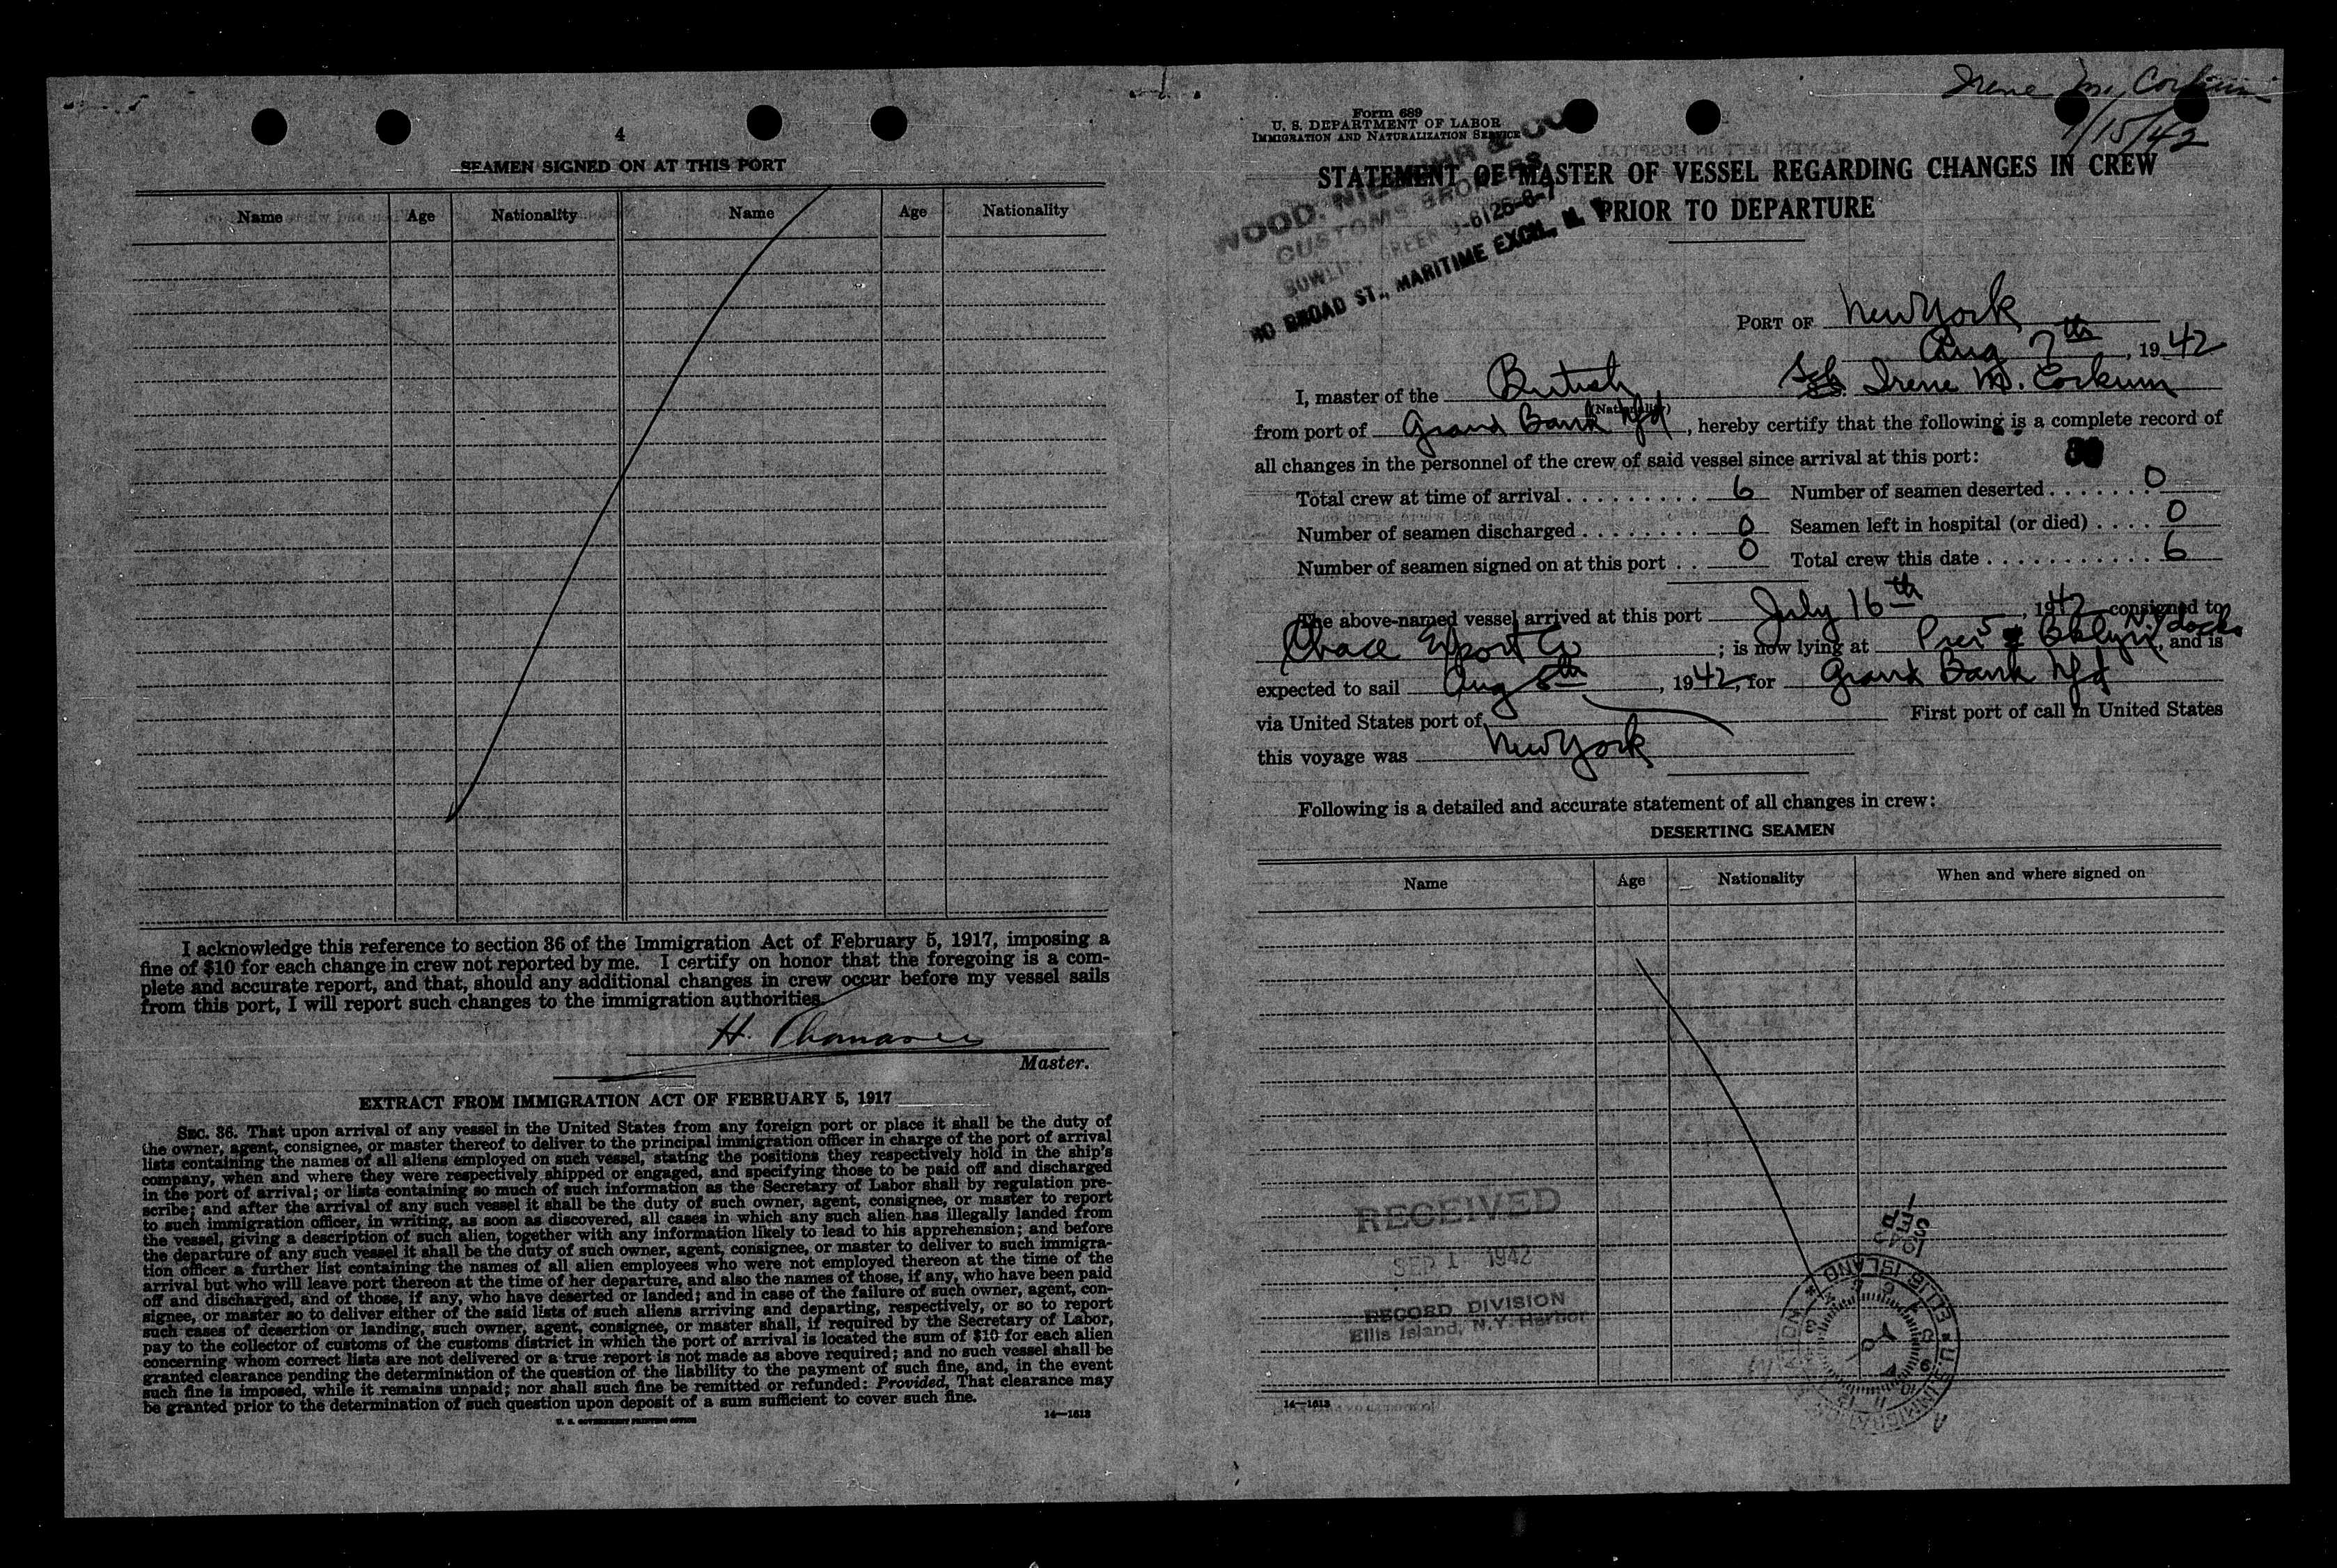 4
SEAMEN SIGNED ON AT THIS PORT
Name Age Nationality Name Age Nationality
I acknowledge this reference to section 36 of the Immigration Act of February 5, 1917, imposing a
fine of $10 for each change in crew not reported by me. I certify on honor that the foregoing is a com-
plete and accurate report, and that, should any additional changes in crew occur before my vessel sails
from this port, I will report such changes to the immigration authorities.
H.
Master.
EXTRACT FROM IMMIGRATION ACT OF FEBRUARY 5, 1917
SEC. 36. That upon arrival of any vessel in the United States from any foreign port or place it shall be the duty of
the owner, agent, consignee, or master thereof to deliver to the principal immigration officer in charge of the port of arrival
lists containing the names of all aliens employed on such vessel, stating the positions they respectively hold in the ship's
company, when and where they were respectively shipped or engaged, and specifying those to be paid off and discharged
in the port of arrival; or lists containing so much of such information as the Secretary of Labor shall by regulation pre-
scribe; and after the arrival of any such vessel it shall be the duty of such owner, agent, consignee, or master to report
to such immigration officer, in writing, as soon as discovered, all cases in which any such alien has illegally landed from
the vessel, giving a description of such alien, together with any information likely to lead to his apprehension; and before
the departure of any such vessel it shall be the duty of such owner, agent, consignee, or master to deliver to such immigra-
tion officer a further list containing the names of all alien employees who were not employed thereon at the time of the
arrival but who will leave port thereon at the time of her departure, and also the names of those, if any, who have been paid
off and discharged, and of those, if any, who have deserted or landed; and in case of the failure of such owner, agent, con-
signee, or master so to deliver either of the said lists of such aliens arriving and departing, respectively, or so to report
such cases of desertion or landing, such owner, agent, consignee, or master shall, if required by the Secretary of Labor,
pay to the collector of customs of the customs district in which the port of arrival is located the sum of $10 for each alien
concerning whom correct lists are not delivered or a true report is not made as above required; and no such vessel shall be
granted clearance pending the determination of the question of the liability to the payment of such fine, and, in the event
such fine is imposed, while it remains unpaid; nor shall such fine be remitted or refunded: Provided, That clearance may
be granted prior to the determination of such question upon deposit of a sum sufficient to cover such fine.
U. S. GOVERNMENT PRINTING OFFICE 14—1613
Irene M. Corkum
/15/42
Form 689
U. S. DEPARTMENT OF LABOR
IMMIGRATION AND NATURALIZATION SERVICE
WOOD, & CO
CUSTOMS BROKERS
BOWLING GREEN 9-6125-6-7
BROAD ST., MARITIME EXCH., N. Y.
STATEMENT OF MASTER OF VESSEL REGARDING CHANGES IN CREW
PRIOR TO DEPARTURE
PORT OF New York
Aug 7th, 1942
I, master of the British Sch Irene M. Corkum
(Nationality)
from port of Grand Bank Nfd, hereby certify that the following is a complete record of
all changes in the personnel of the crew of said vessel since arrival at this port:
Total crew at time of arrival . . . . . . . . . 6 Number of seamen deserted . . . . . . . 0
Number of seamen discharged . . . . . . . . 0 Seamen left in hospital (or died) . . . . 0
Number of seamen signed on at this port . . 0 Total crew this date . . . . . . . . . . . 6
The above-named vessel arrived at this port July 16th, 1942 consigned to
Chace Export Co; is now lying at Pier 5 Bklyn NY docks, and is
expected to sail Aug 8th, 1942, for Grand Bank Nfd
via United States port of First port of call in United States
this voyage was New York
Following is a detailed and accurate statement of all changes in crew:
DESERTING SEAMEN
Name Age Nationality When and where signed on
RECEIVED
SEP 1 1942
RECORD DIVISION
Ellis Island, N.Y. Harbor
SEP 1
1942
ELLIS ISLAND
U.S. IMMIGRATION
14—1613